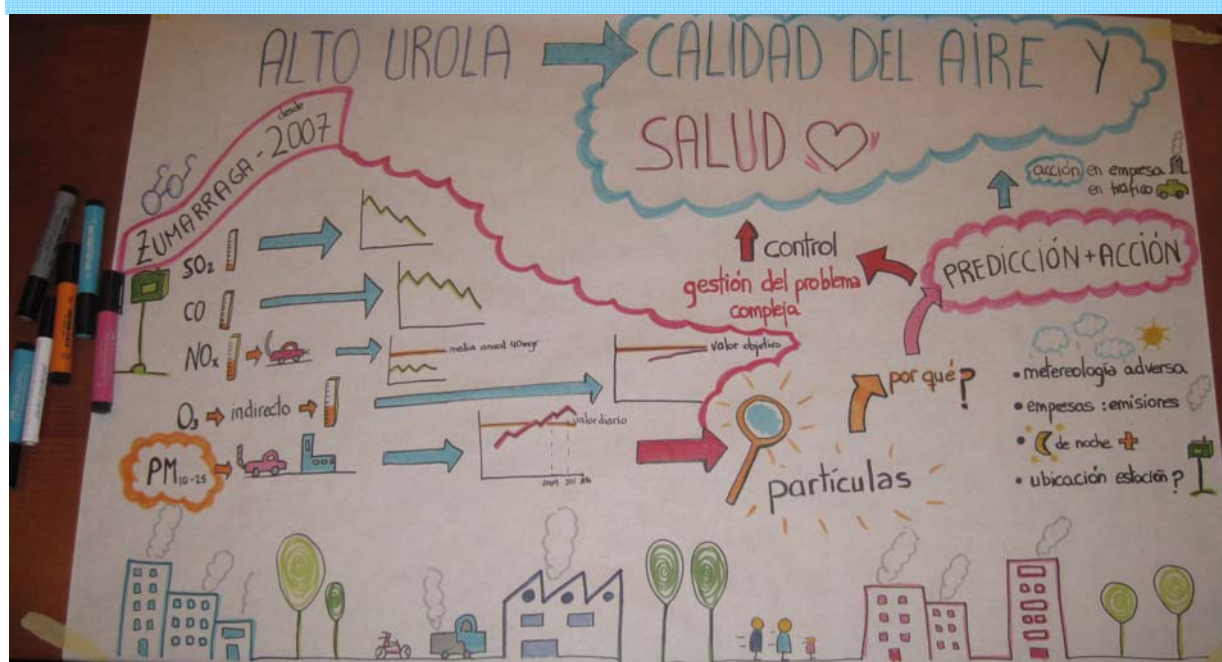 ALTO UROLA
CALIDAD DEL AIRE Y
SALUD
desde
ZUMARRAGA - 2007
SO₂
CO
NOx
media anual 40mgr
O₃
indirecto
valor objetivo
PM10-25
valor diario
2009
partículas
control
gestión del problema
compleja
por qué?
PREDICCIÓN+ACCIÓN
acción en empresa
en tráfico
• metereología adversa
• empresas: emisiones
• de noche +
• ubicación estación?